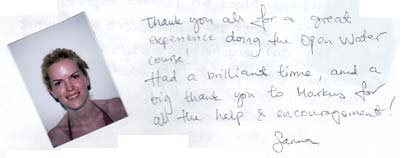 Thank you all for a great
experience doing the Open Water
course!
Had a brilliant time, and a
big thank you to Markus for
all the help & encouragement!
Sanna